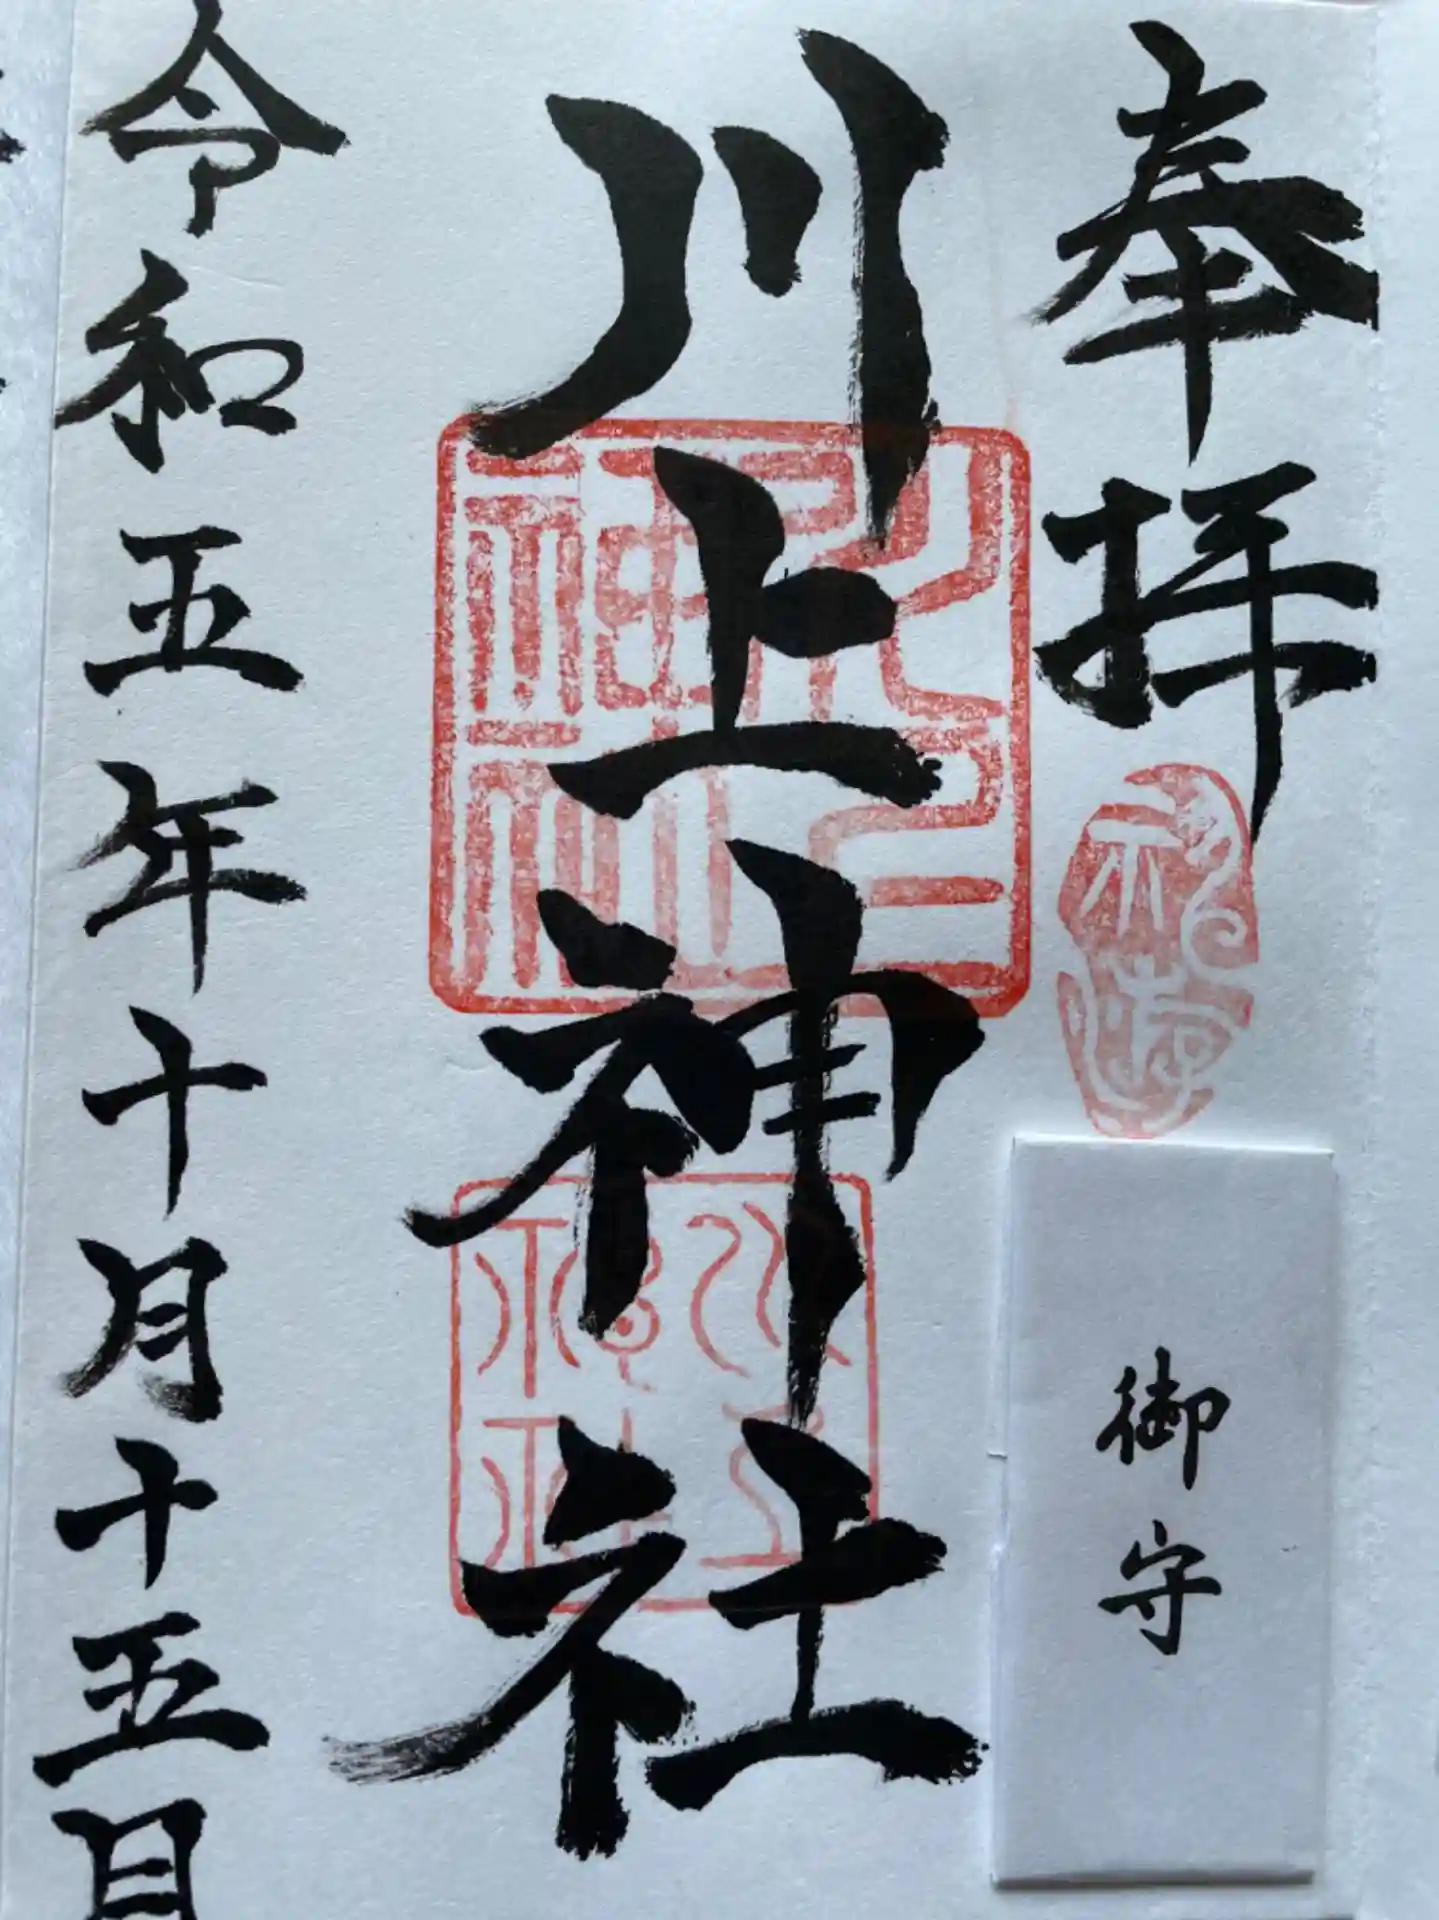 奉拝
川上神社
令和五年十月十五日
御守